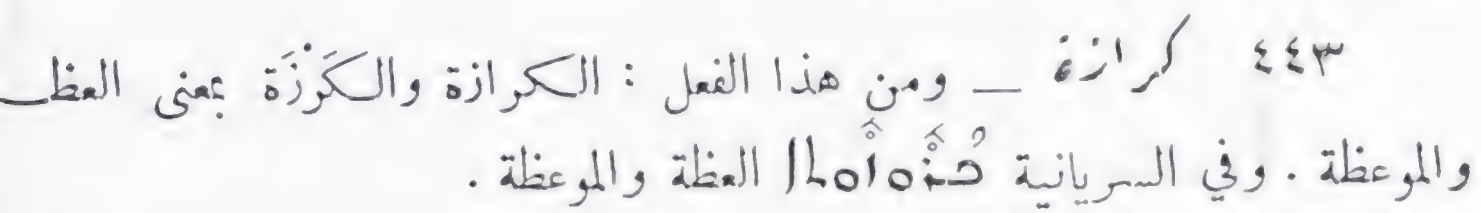 ٤٤٣ كرازة — ومن هذا الفعل : الكرازة والكَرْزَة بمعنى العظـ
والموعظة . وفي السريانية ܟܳܪܽܘܙܽܘܬܐ العظة والموعظة .